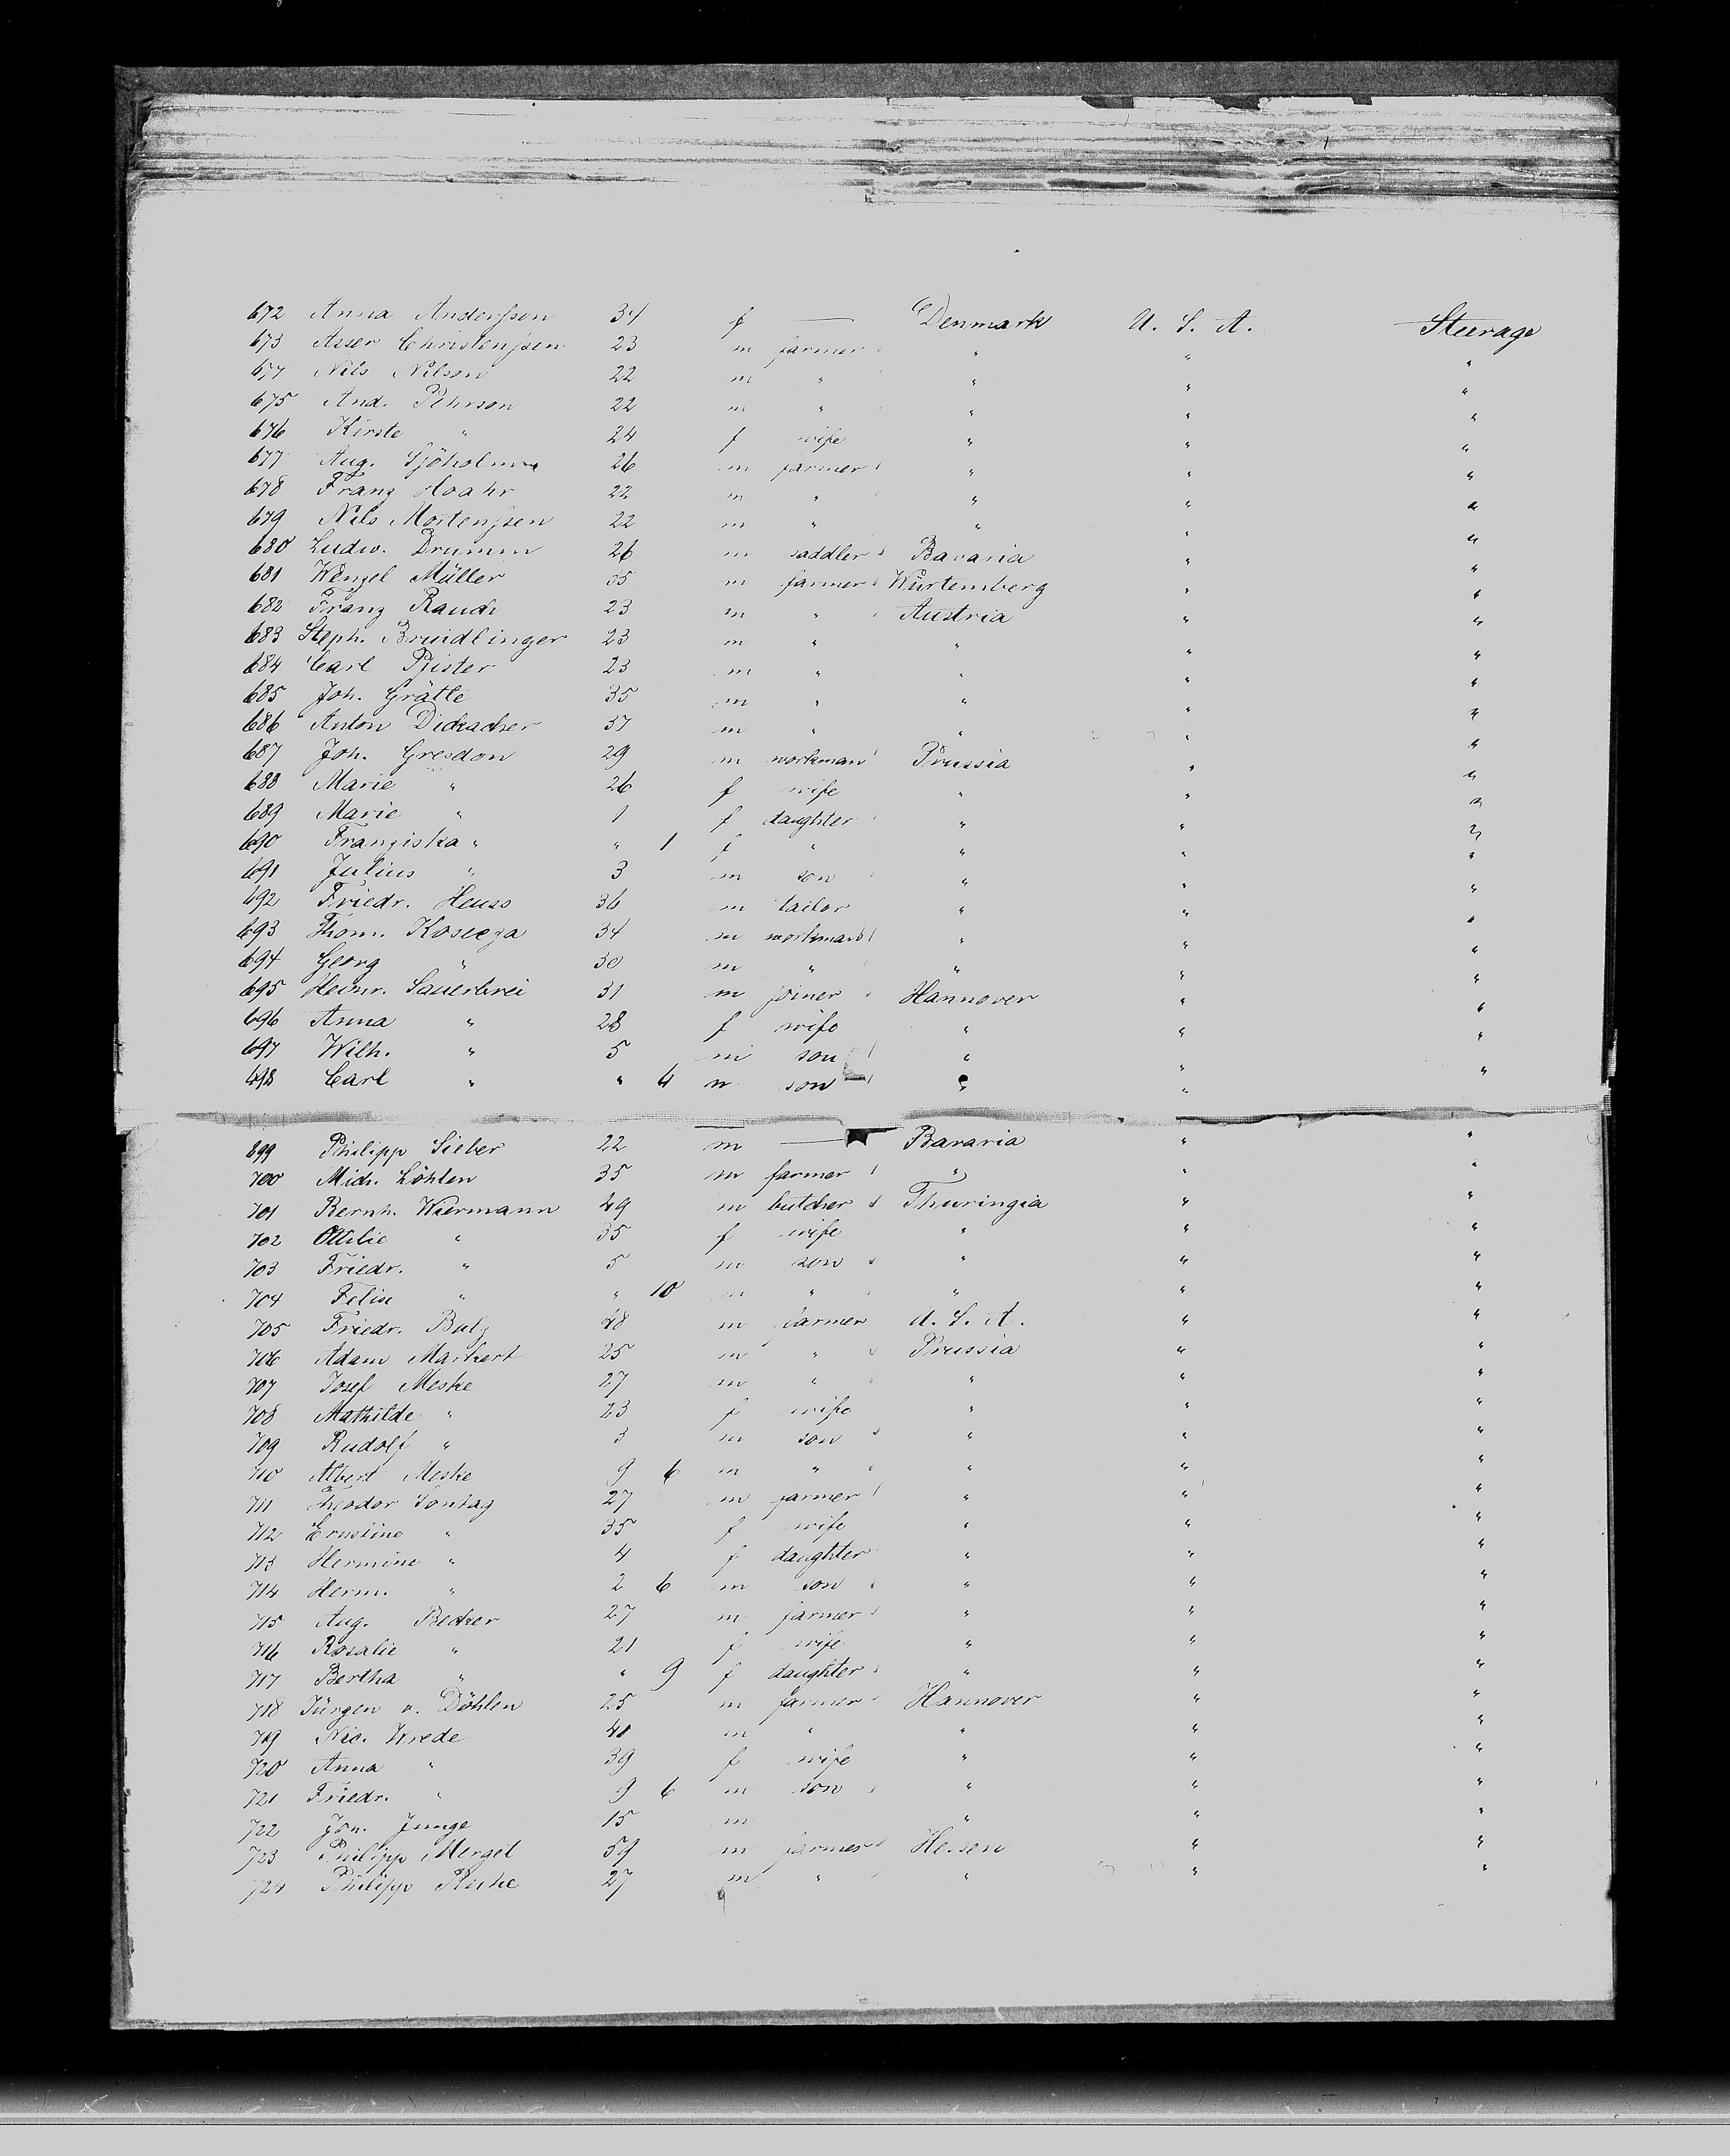 672 Anna Anderssen 34 f — Denmark U. S. A. Steerage
673 Asser Christenssen 23 m farmer " " "
674 Nils Nilson 22 m " " " "
675 And. Pehrson 22 m " " " "
676 Kirste " 24 f wife " " "
677 Aug. Sjöholm 26 m farmer " " "
678 Franz Hoahr 22 m " " " "
679 Nils Mortenssen 22 m " " " "
680 Ludw. Drumm 26 m saddler Bavaria " "
681 Wenzel Müller 35 m farmer Würtemberg " "
682 Franz Rauch 23 m " Austria " "
683 Steph. Bruidlinger 23 m " " " "
684 Carl Pfister 23 m " " " "
685 Joh. Grätte 35 m " " " "
686 Anton Dickacher 37 m " " " "
687 Joh. Gresdon 29 m workman Prussia " "
688 Marie " 26 f wife " " "
689 Marie " 1 f daughter " " "
690 Franziska " " 1 f " " " "
691 Julius " 3 m son " " "
692 Friedr. Heuss 36 m tailor " " "
693 Thom. Kosiega 34 m workman " " "
694 Georg " 30 m " " " "
695 Heinr. Sauerbrei 31 m joiner Hannover " "
696 Anna " 28 f wife " " "
697 Wilh. " 5 m son " " "
698 Carl " " 4 m son " " "
699 Philipp Sieber 22 m — Bavaria " "
700 Mich. Löhlen 35 m farmer " " "
701 Bernh. Wiermann 49 m butcher Thuringia " "
702 Ottilie " 35 f wife " " "
703 Friedr. " 5 m son " " "
704 Felix " " 10 m " " " "
705 Friedr. Bulz 48 m farmer U. S. A. " "
706 Adam Markert 25 m " Prussia " "
707 Josef Meske 27 m " " " "
708 Mathilde " 23 f wife " " "
709 Rudolf " 3 m son " " "
710 Albert Meske 9 6 m " " " "
711 Theodor Sontag 27 m farmer " " "
712 Ernstine " 35 f wife " " "
713 Hermine " 4 f daughter " " "
714 Herm. " 2 6 m son " " "
715 Aug. Becker 27 m farmer " " "
716 Rosalie " 21 f wife " " "
717 Bertha " " 9 f daughter " " "
718 Jürgen v. Döhlen 25 m farmer Hannover " "
719 Nic. Wrede 40 m " " " "
720 Anna " 39 f wife " " "
721 Friedr. " 9 6 m son " " "
722 Joh. Junge 15 m " " "
723 Philipp Mergel 59 m farmer Hessen " "
724 Philipp 27 m " " " "